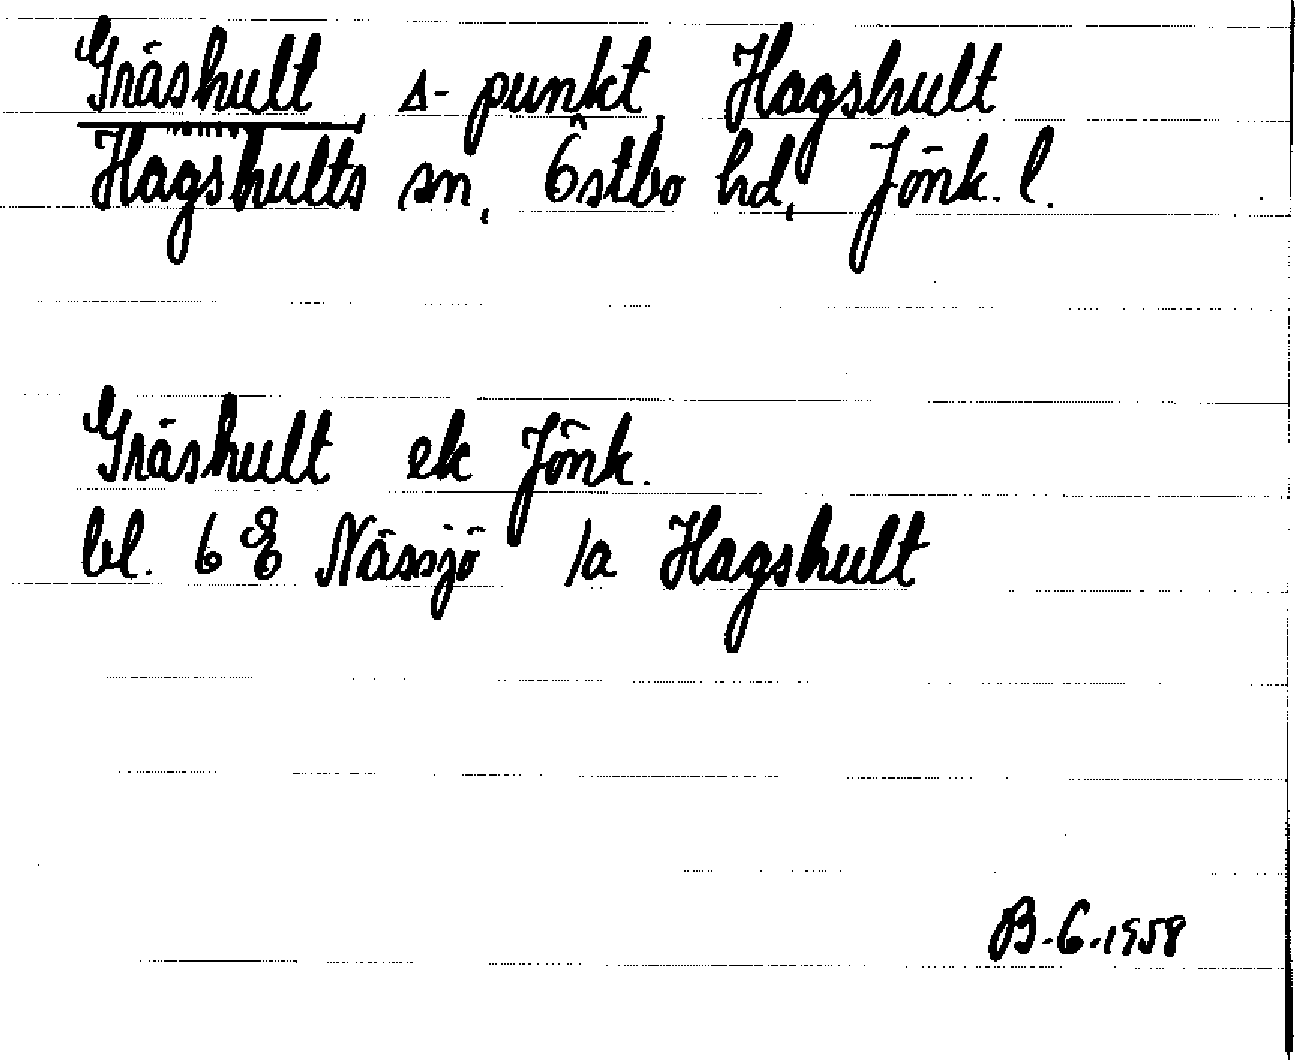 Gräshult, ∆-punkt, Hagshult
Hagshults sn, Östbo hd, Jönk. l.
Gräshult ek Jönk.
bl. 6 E Nässjö 1a Hagshult
B-G.1958